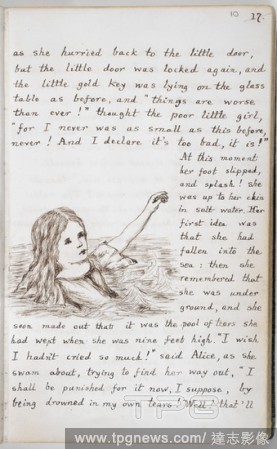 10 17.
as she hurried back to the little door,
but the little door was locked again, and
the little gold key was lying on the glass
table as before, and "things are worse
than ever!" thought the poor little girl,
"for I never was as small as this before,
never! And I declare it's too bad, it is!"
At this moment
her foot slipped,
and splash! she
was up to her chin
in salt water. Her
first idea was
that she had
fallen into the
sea: then she
remembered that
she was under
ground, and she
soon made out that it was the pool of tears she
had wept when she was nine feet high. "I wish
I hadn't cried so much!" said Alice, as she
swam about, trying to find her way out, "I
shall be punished for it now, I suppose, by
being drowned in my own tears! Well! that'll
TPG
www.tpgnews.com/ 達志影像